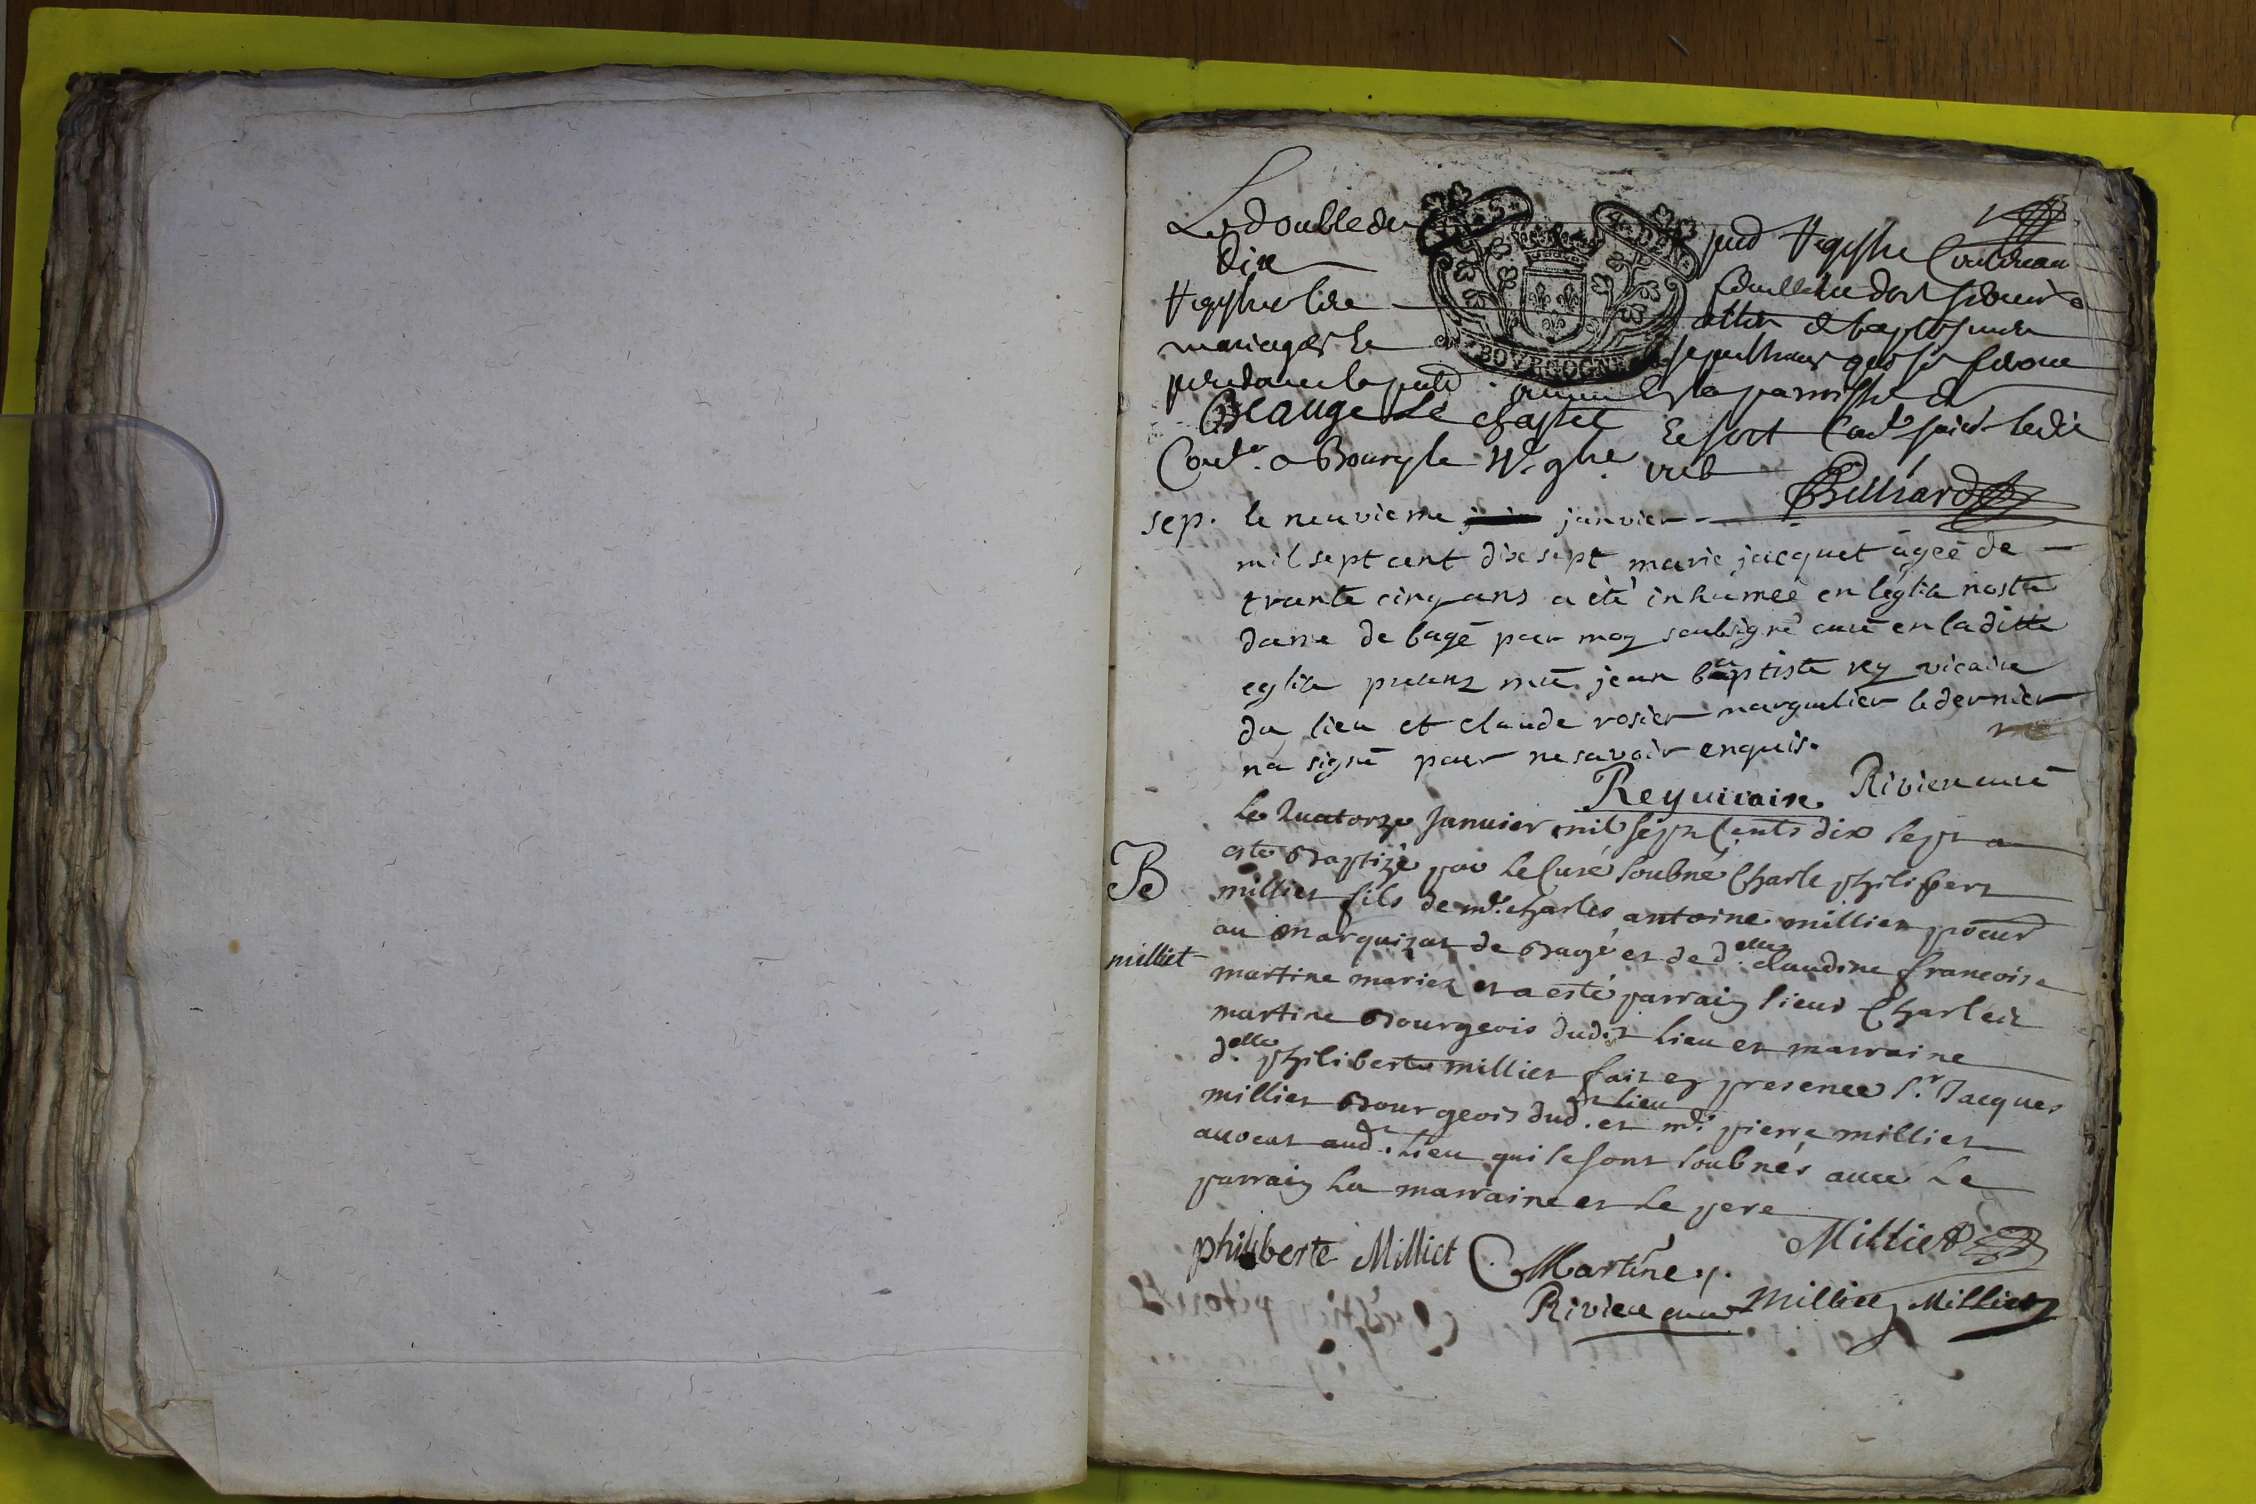 Le double du pnt Registre Contenant
dix feuillets
Registrer les actes de baptesmes
mariages et sepultures qui se feront
pendant la pnte année en la parroisse de
Beaugé Le chastel
Contr. a Bourg le
BOVRGOGNE
4. DEN.
Billiard
sep. le neuvieme janvier
mil sept cent dix sept marie jacquet agée de
trante cinq ans a été inhumée en léglise nostre
dame de bagé par moy soubsigné curé en laditte
eglise presens mre jean baptiste rey vicaire
du lieu et claude rosier marguelier le dernier
na signé pour ne savoir enquis.
Rey vicaire Riviere curé
Le Quatorze Januier mil sept Cents dix sept a
esté Baptizé par le Curé soubné Charle philibert
B
milliet fils de mr. charles antoine milliet procur
au marquizat de Bagé et de delle claudine francoise
milliet
martine mariez et a esté parrain sieur Charles
martine Bourgeois dudit lieu et marraine
delle philiberte milliet fait en presence sr. Jacques
milliet Bourgeois dud. lieu et mr. pierre milliet
auocat aud. Lieu qui se sont soubnés auec Le
parrain La marraine et Le pere
philiberte Milliet C. Martine Milliet
Riviere curé Milliet Milliet